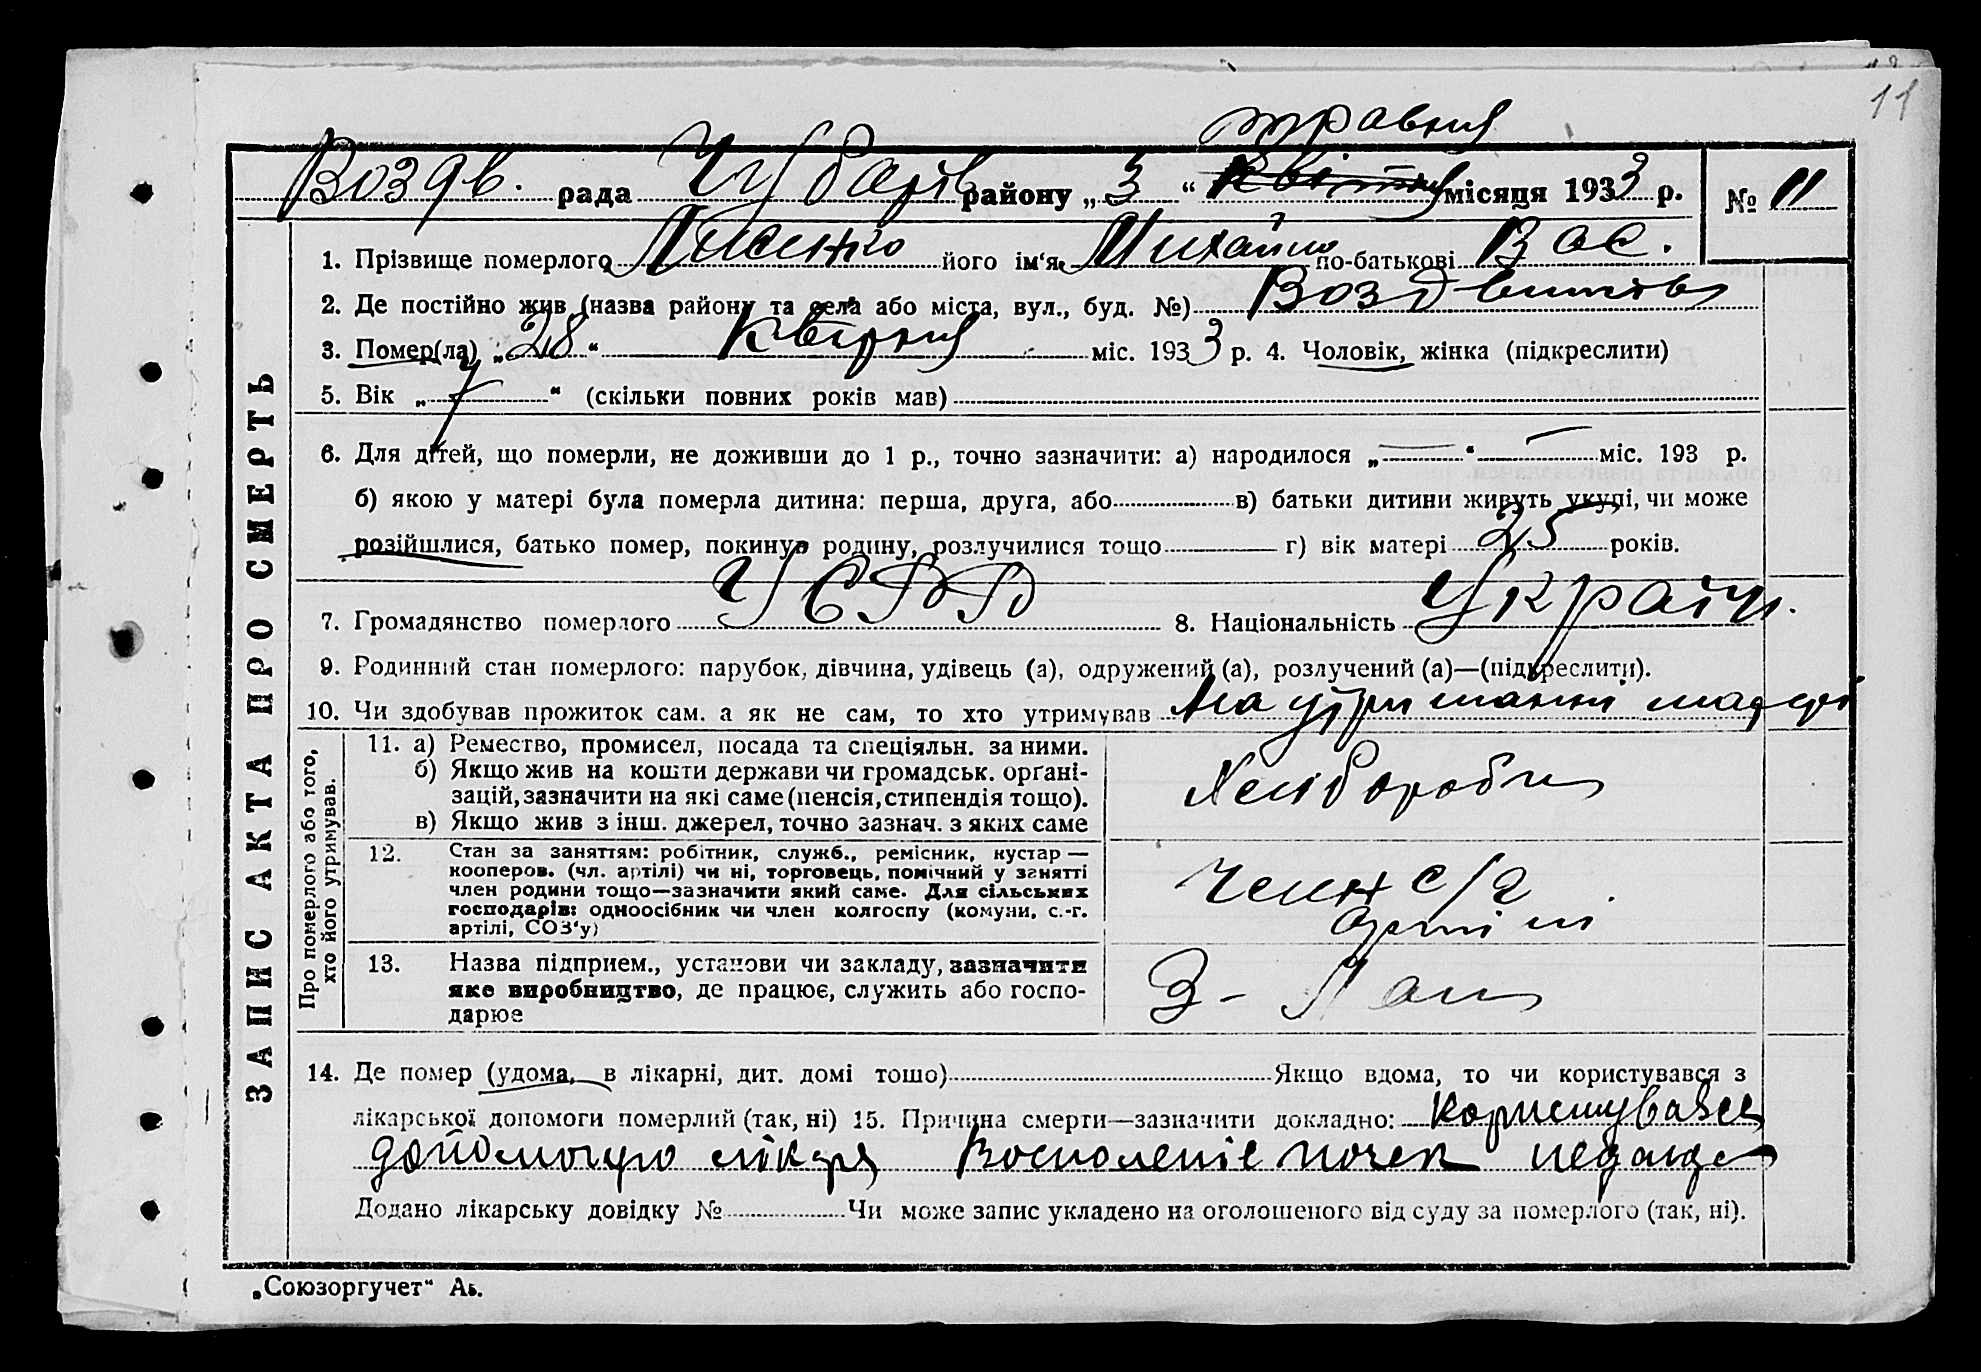 11
травня
Воздв. рада Чубарів району „3“ Квітня місяця 1933 р. № 11
1. Прізвище померлого Лисенко його ім'я Михайло по-батькові Вас.
2. Де постійно жив (назва району та села або міста, вул., буд. №)
3. Помер(ла) „28“ Квітня міс. 1933 р. 4. Чоловік, жінка (підкреслити)
5. Вік „ “ (скільки повних років мав)
6. Для дітей, що померли, не доживши до 1 р., точно зазначити: а) народилося „—“ — міс. 193 р.
б) якою у матері була померла дитина: перша, друга, або в) батьки дитини живуть укупі, чи може
розійшлися, батько помер, покинув родину, розлучилися тощо г) вік матері 25 років.
7. Громадянство померлого УСРР 8. Національність Україн.
9. Родинний стан померлого: парубок, дівчина, удівець (а), одружений (а), розлучений (а)—(підкреслити).
10. Чи здобував прожиток сам. а як не сам, то хто утримував На утриманні матері
ЗАПИС АКТА ПРО СМЕРТЬ
Про померлого або того,
хто його утримував.
11. а) Ремество, промисел, посада та спеціяльн. за ними.
б) Якщо жив на кошти держави чи громадськ. орґані-
зацій, зазначити на які саме (пенсія, стипендія тощо).
в) Якщо жив з інш. джерел, точно зазнач. з яких саме
Хлібороби
12. Стан за заняттям: робітник, служб., ремісник, кустар —
кооперов. (чл. артілі) чи ні, торговець, помічний у занятті
член родини тощо—зазначити який саме. Для сільських
господарів: одноосібник чи член колгоспу (комуни, с.-г.
артілі, СОЗ'у)
Член с/г
артілі
13. Назва підприєм., установи чи закладу, зазначити
яке виробництво, де працює, служить або госпо-
дарює
14. Де помер (удома, в лікарні, дит. домі тошо) Якщо вдома, то чи користувався з
лікарської допомоги померлий (так, ні) 15. Причина смерти—зазначити докладно: користувався
допомогую лікаря Восполеніє почек
Додано лікарську довідку № Чи може запис укладено на оголошеного від суду за померлого (так, ні).
„Союзоргучет“ Аь.